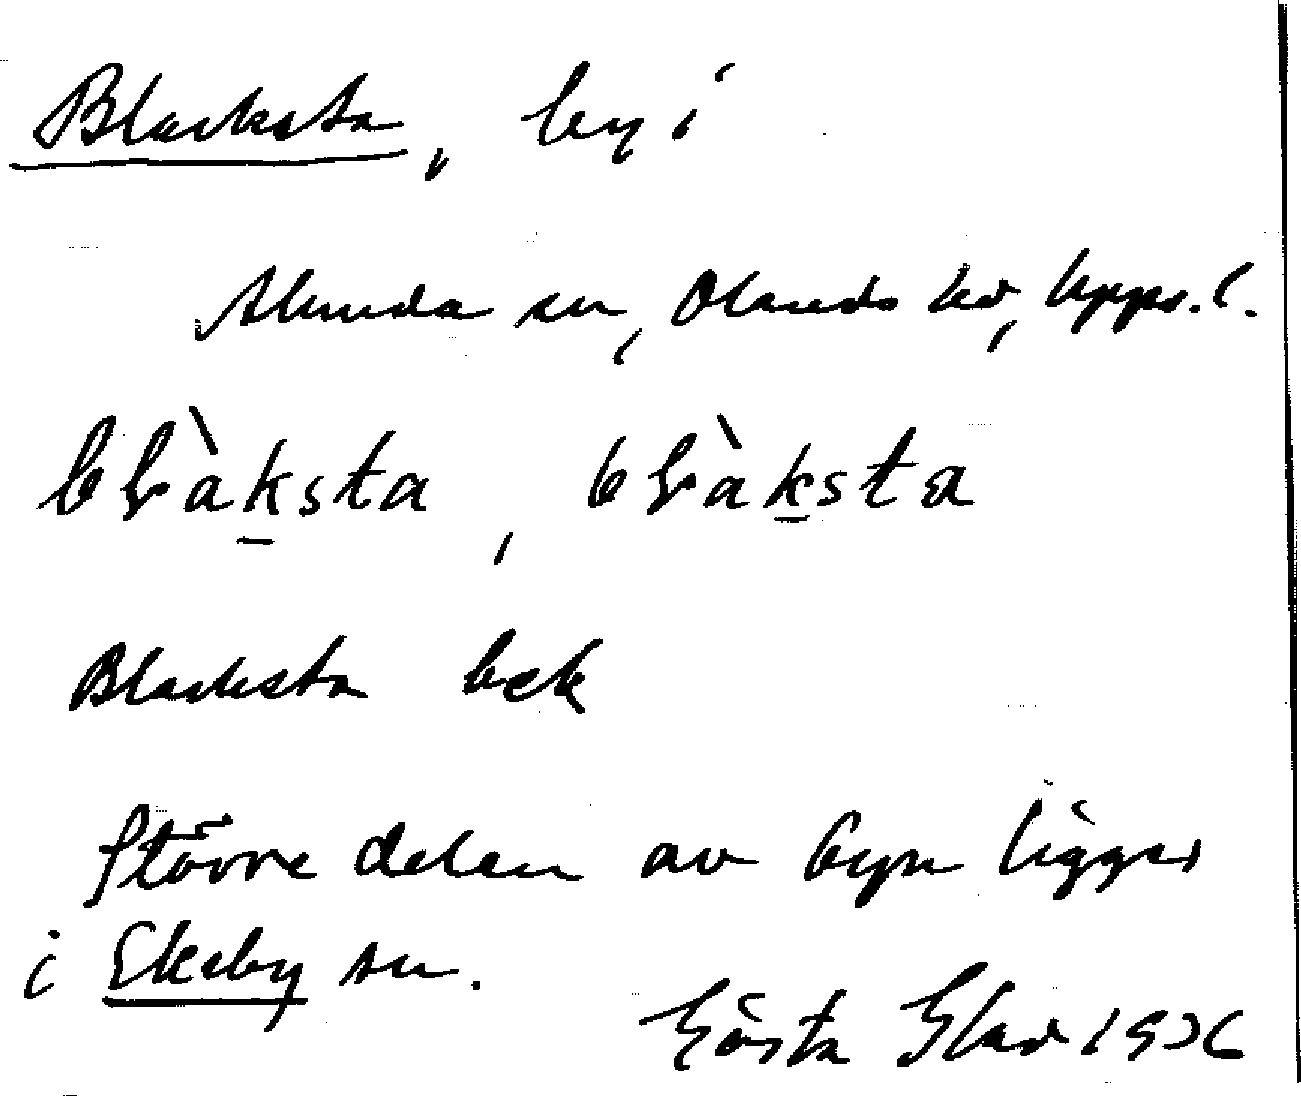 Blacksta, by i
Alunda sn, Olands hd, Upps. l.
blàksta, blàksta
Blacksta bek
Större delen av byn ligger
i Ekeby sn.
Gösta Glad 1936